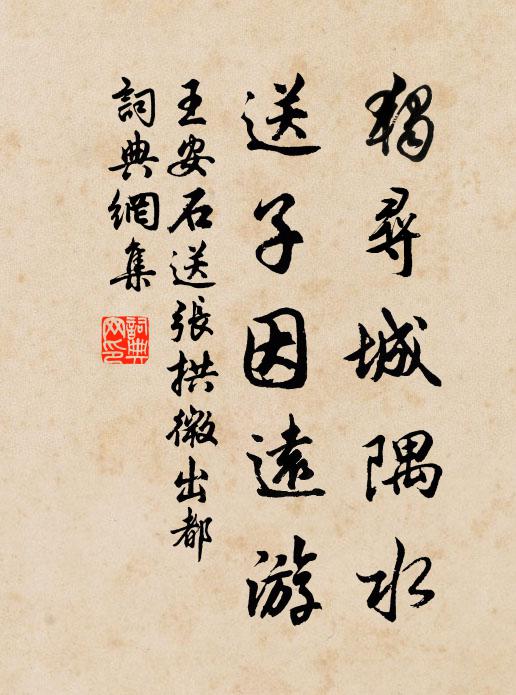 獨尋城隅水
送子因遠游
王安石送張拱微出都
詞典網集
詞典网印